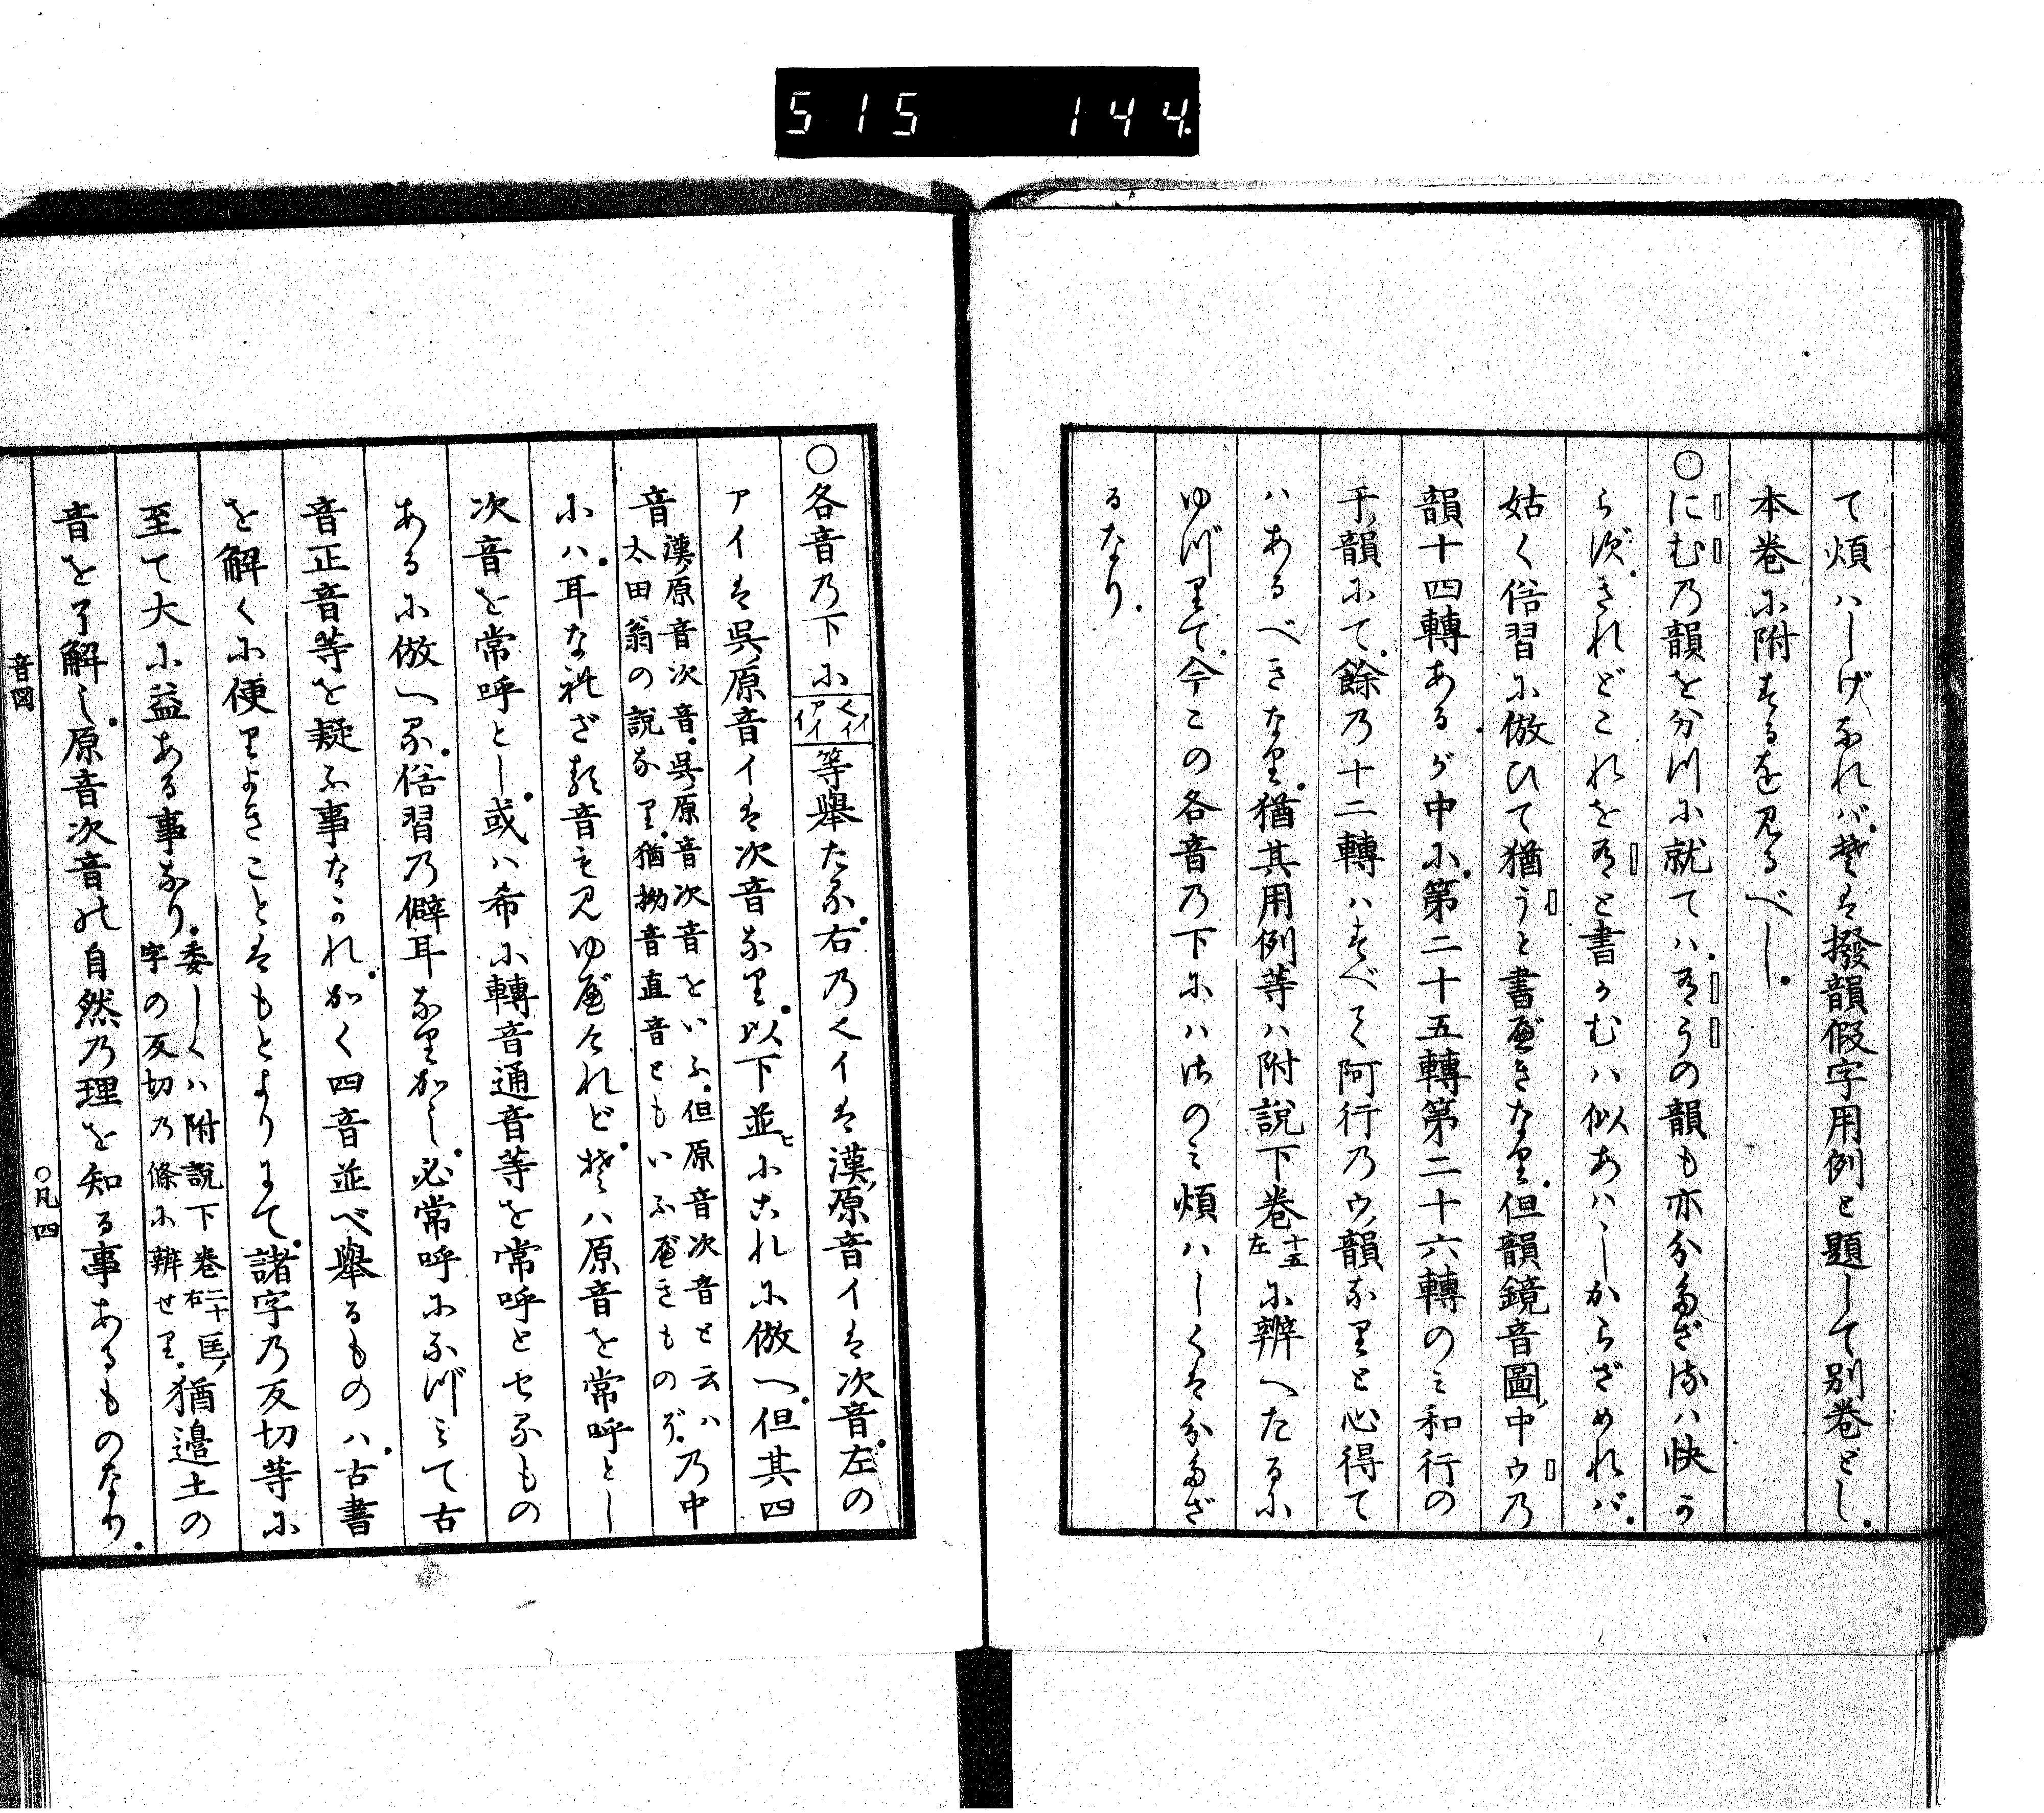 515 144
て煩ハしげなれバ。そは撥韻假字用例と題して別卷とし。
本卷に附するを見るべし。
○にむの韻を分つに就てハ。爲うの韻も亦分たざるハ快か
らず。されどこれを爲と書かむハ似あハしからざめれバ。
姑く俗習に倣ひて猶うと書べきなり。但韻鏡音圖中ウの
韻十四轉あるが中に。第二十五轉第二十六轉のミ和行の
于韻にて。餘の十二轉ハすべて阿行のウ韻なりと心得て
ハあるべきなり。猶其用例等ハ附説下卷十五左に辨へたるに
ゆづりて。今この各音の下にハさのミ煩ハしくは分たざ
るなり。
○各音の下にくイイアイイ等擧たる。右のくイは漢原音イは次音。左の
アイは呉原音イは次音なり。以下並ヒにこれに倣へ。但其四
音漢原音次音。呉原音次音をいふ。但原音次音と云ハ太田翁の説なり。猶拗音直音ともいふべきものぞ。の中
にハ。耳なれざる音も見ゆべけれど。そハ原音を常呼とし
次音を常呼とし。或ハ希に轉音通音等を常呼とせるもの
あるに倣へる。俗習の僻耳なりかし。必常呼になづミて古
音正音等を疑ふ事なかれ。かく四音並べ擧るものハ。古書
を解くに便りよきことはもとよりにて。諸字の反切等に
至て大に益ある事なり。委しくハ附説下卷二十右匡字の反切の條に辨せり。猶邉土の
音を了解し。原音次音の自然の理を知る事あるものなり。
音図
○凡四